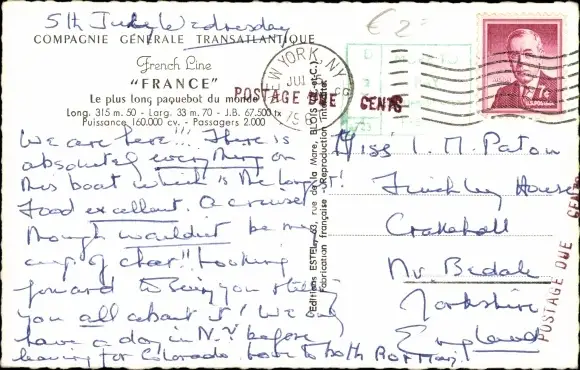 5th July Wednesday
COMPAGNIE GÉNÉRALE TRANSATLANTIQUE
French Line
"FRANCE"
Le plus long paquebot du monde
Long. 315 m. 50 - Larg. 33 m. 70 - J.B. 67.500 tx
Puissance 160.000 cv. - Passagers 2.000
We are here!!! There is
absolutely everything on
this boat which is the longest!
Food excellent. A cruise
though wouldn't be my
cup of char!! Looking
forward to seeing you & telling
you all about it! We only
have a day in N.Y before
leaving for Colorado. Love to both
Editions ESTEL, 63, rue de la Mare, BLOIS (L.-et-C.)
Fabrication française - Reproduction interdite
€ 2
NEW YORK, N.Y.
JUL
POSTAGE DUE CENTS
7c
U.S. POSTAGE
Miss I. M. Paton
Finchley House
Crakehall
Nr. Bedale
Yorkshire
England
POSTAGE DUE CENTS